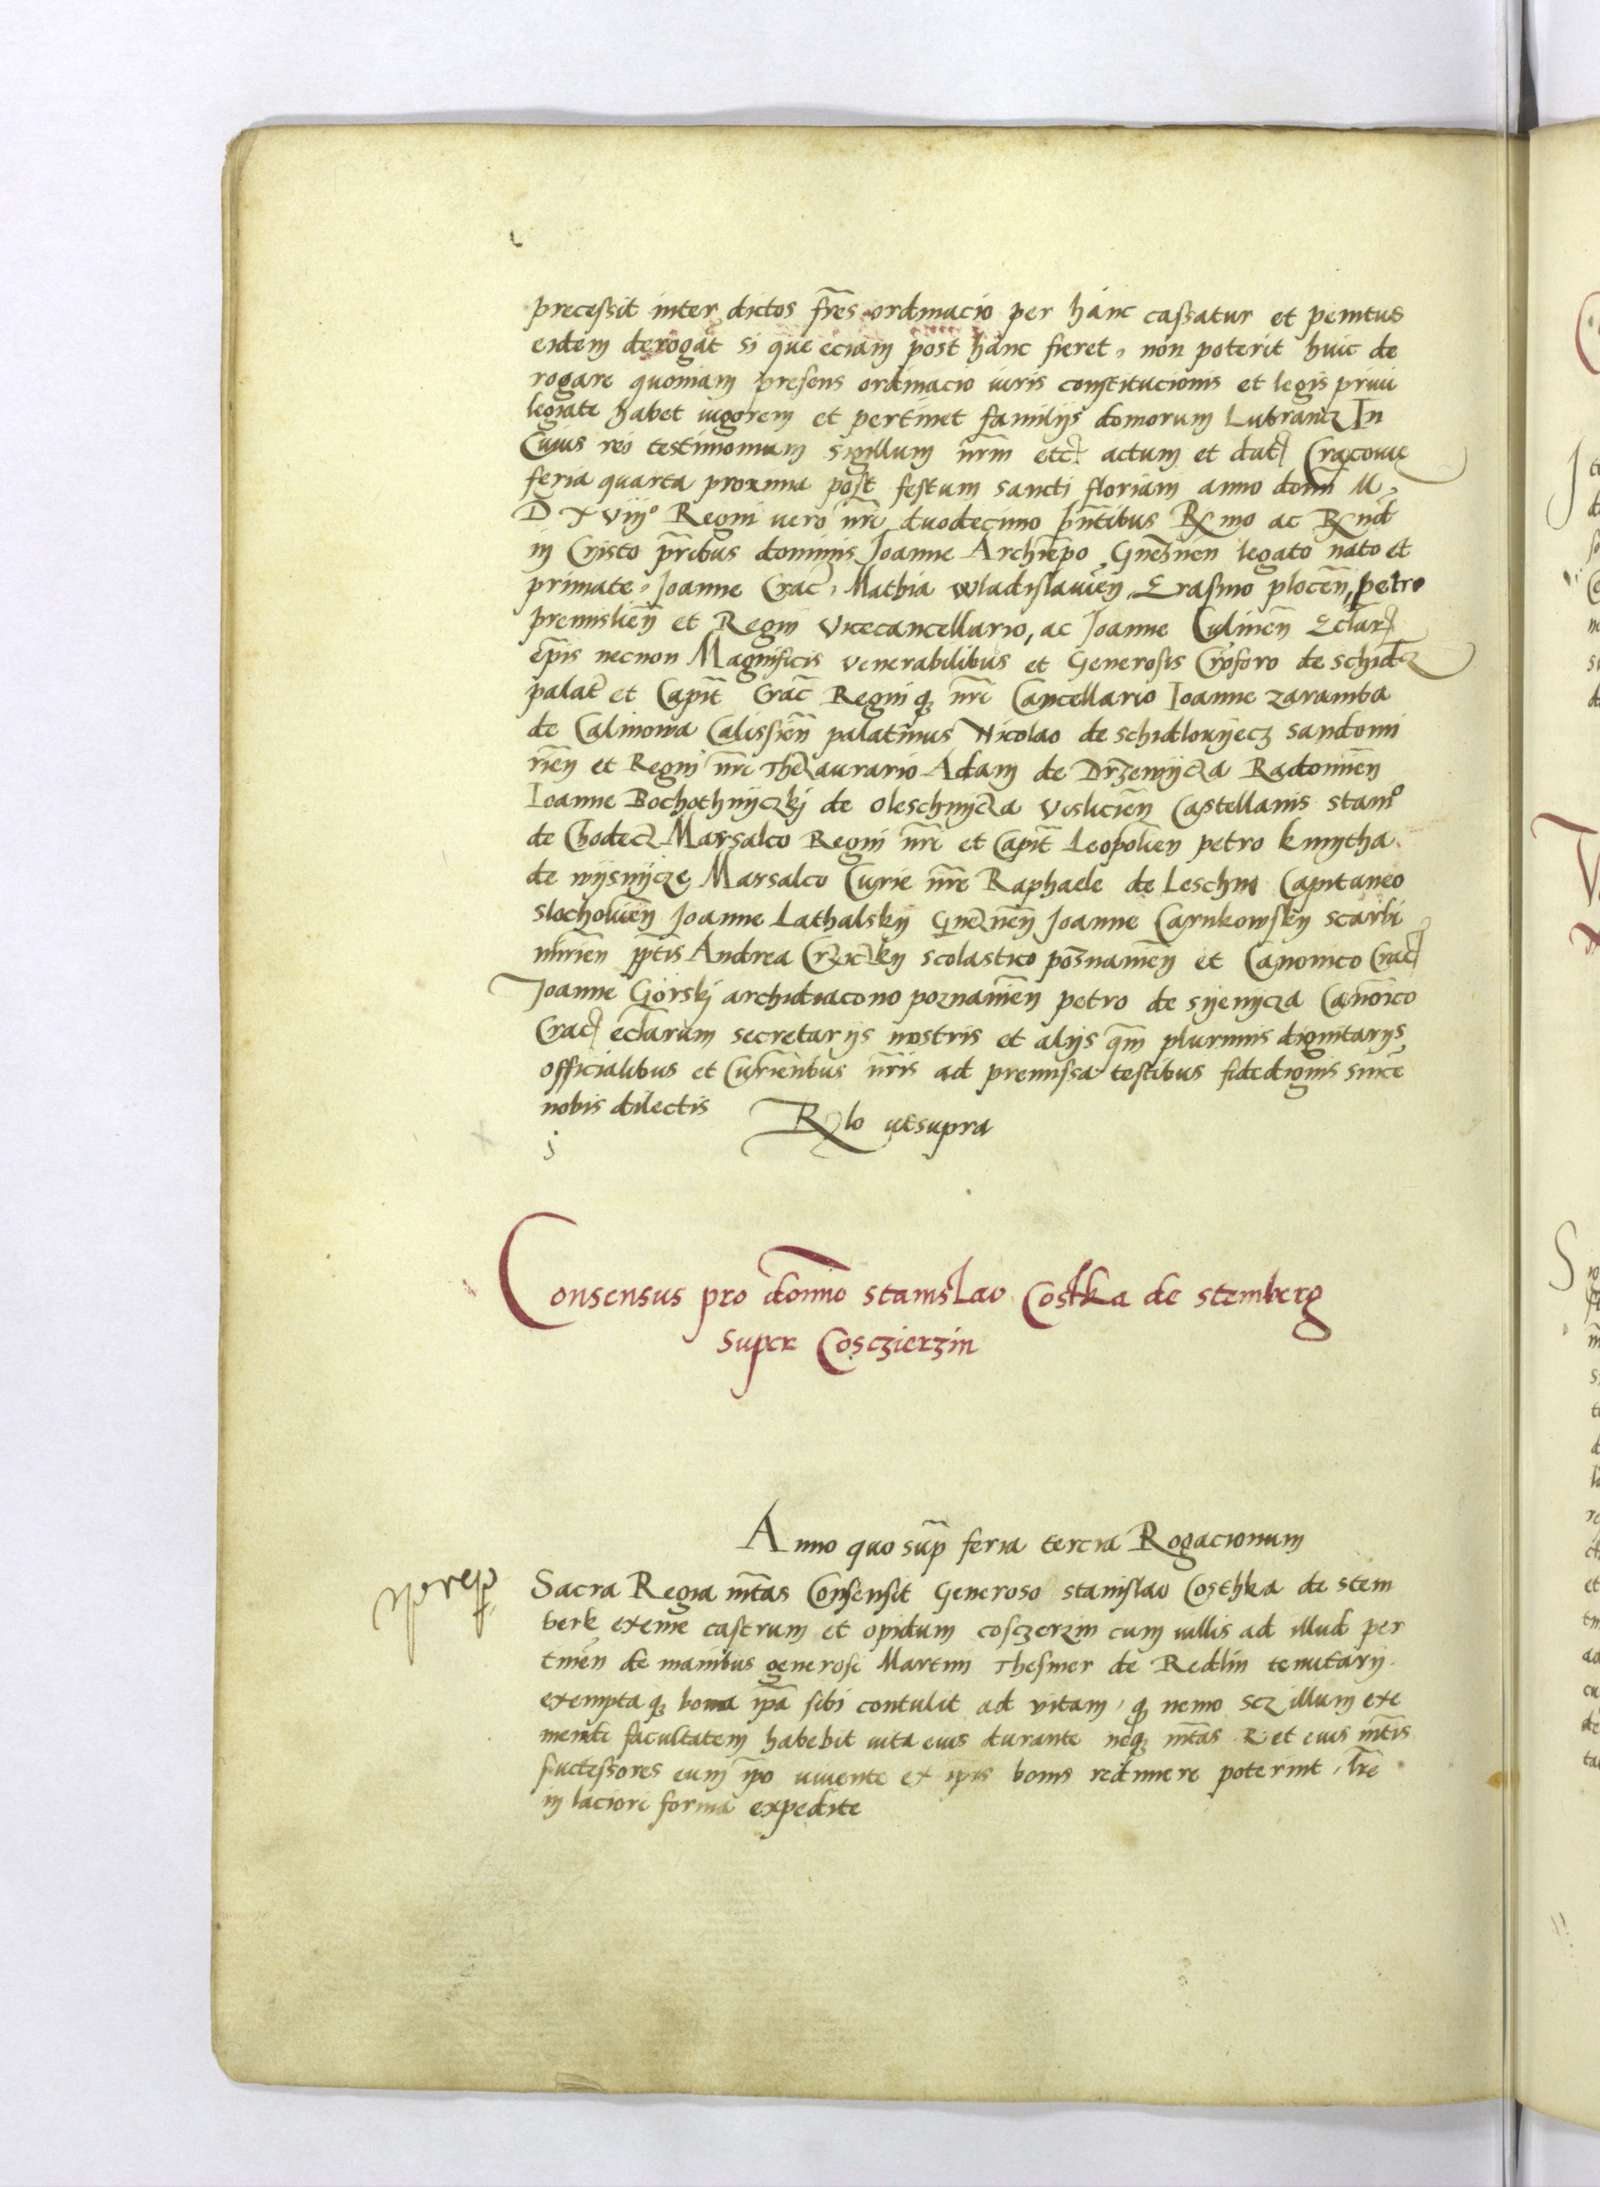 precessit inter dictos fr̄es ordinacio per hanc cassatur et penitus
eidem derogat si que eciam post hanc fieret, non poterit huic de
rogare quoniam presens ordinacio iuris constitucionis et legis priui
legiate habet uigorem et pertinet familijs domorum Lubrancz In
Cuius rei testimonium sigillum nr̄m etc̄ actum et dat̄ Cracouie
feria quarta proxima post festum sancti floriani anno domī M,
D XViijº Regni uero nr̄i duodecimo pn̄tibus Rmo ac Rnd
in Cristo pr̄ibus dominis Joanne Archiep̄o Gneznen legato nato et
primate, Joanne Crac̄, Mathia wladislauien̄, Erasmo plocen̄, petro
premislien̄ et Regni Vicecancellario, ac Joanne Culmen̄ Ecl̄ar
ep̄is necnon Magnificis venerabilibus et Generosis Cr̄oforo de schidz
palat̄ et Capit̄ Crac̄ Regniq nr̄i Cancellario Ioanne zaramba
de Calinowa Calissien̄ palatinus Nicolao de schidlovijecz sandomi
rien̄ et Regni nr̄i Thezaurario Adam de Drzewijcza Radomien̄
Ioanne Bochothnijczkj de oleschnijcza vislicien̄ Castellanis stanº
de Chodecz Marsalco Regni nr̄i et Capit̄ Leopolien̄ petro kmytha
de wijsnijcze Marsalco Curie nr̄e Raphaele de Leschno Capitaneo
slochouien̄ Joanne Lathalskij Gneznen̄ Joanne Carnkowskij scarbi
mirien̄ pp̄tis Andrea Crziczkij scolastico posnanien̄ et Canonico Crac̄
Joanne Gorskj archidiacono poznanien̄ petro de sijenicza Canonico
Crac̄ ecl̄arum secretarijs nostris et alijs qm̄ plurimis dignitarijs
officialibus et Curien̄tibus nr̄is ad premissa testibus fidedignis since
nobis dilectis Rlo utsupra
Consensus pro domino stanislao Costka de stemberg
super Cosczierzin
Anno quo sup̄ feria tercia Rogacionum
Sacra Regia mt̄as Consensit Generoso stanislao Costhka de stem
berk exeme castrum et opidum cosczerzin cum uillis ad illud per
tinen̄ de manibus generosi Martini Thesmer de Redlin tenutarij
exemptaq bona ip̄a sibi contulit ad vitam, q nemo scz illum exi
mendi facultatem habebit uita eius durante neq mt̄as R et eius mt̄is
successores eum ip̄o uiuente ex ip̄is bonis redimere poterint, lr̄e
in laciori forma expedite